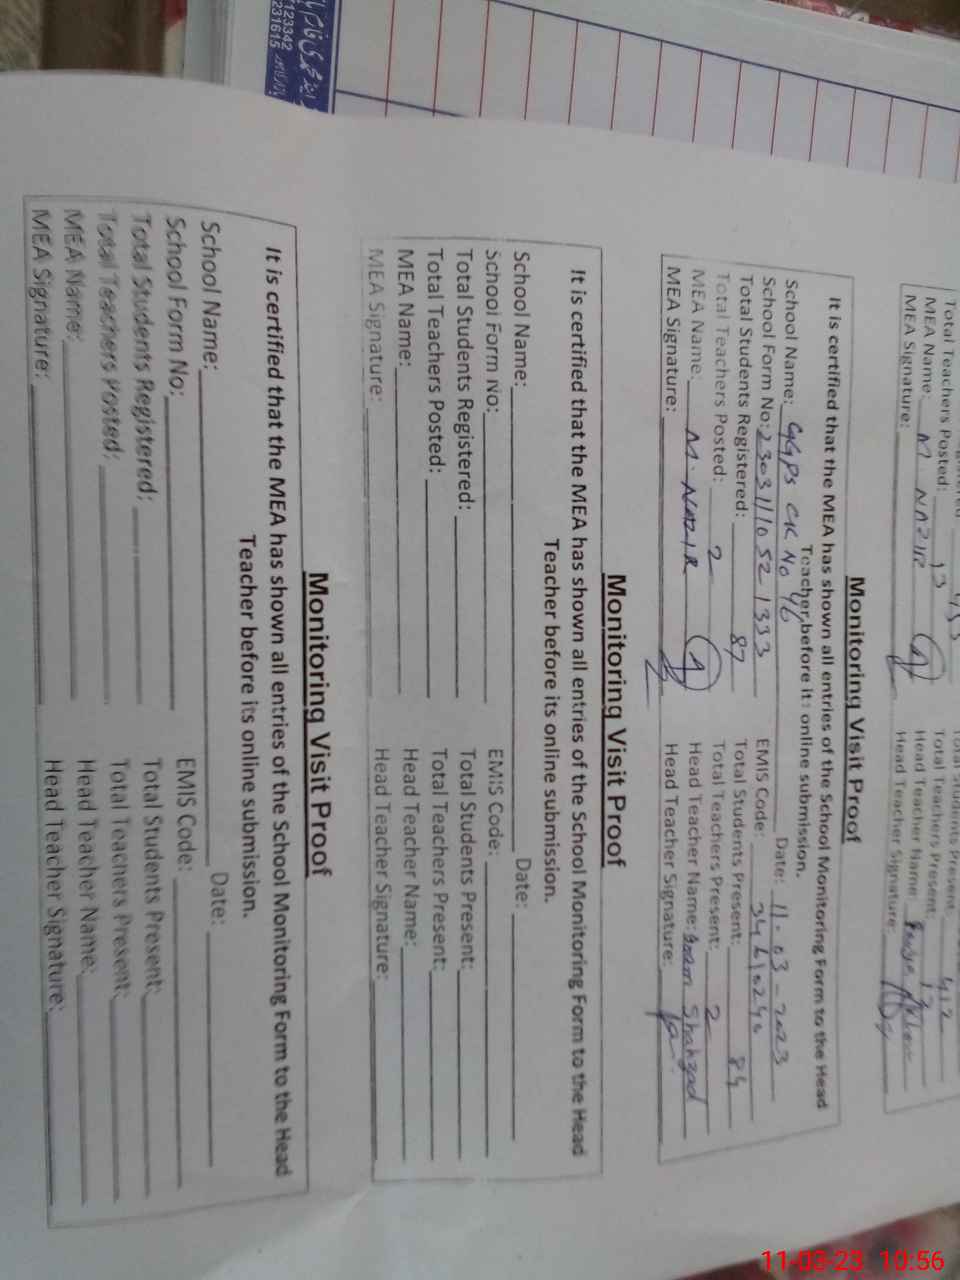 Total Teachers Posted: 13 Total Teachers Present: 12
MEA Name: M. NAZIR Head Teacher Name:
MEA Signature: Head Teacher Signature:
Monitoring Visit Proof
It is certified that the MEA has shown all entries of the School Monitoring Form to the Head
Teacher before its online submission.
School Name: GGPS CK No 46 Date: 11-03-2023
School Form No: 2303110521333 EMIS Code: 34610240
Total Students Registered: 87 Total Students Present: 84
Total Teachers Posted: 2 Total Teachers Present: 2
MEA Name: M. NAZIR Head Teacher Name: Shahzad
MEA Signature: Head Teacher Signature:
Monitoring Visit Proof
It is certified that the MEA has shown all entries of the School Monitoring Form to the Head
Teacher before its online submission.
School Name: Date:
School Form No: EMIS Code:
Total Students Registered: Total Students Present:
Total Teachers Posted: Total Teachers Present:
MEA Name: Head Teacher Name:
MEA Signature: Head Teacher Signature:
Monitoring Visit Proof
It is certified that the MEA has shown all entries of the School Monitoring Form to the Head
Teacher before its online submission.
School Name: Date:
School Form No: EMIS Code:
Total Students Registered: Total Students Present:
Total Teachers Posted: Total Teachers Present:
MEA Name: Head Teacher Name:
MEA Signature: Head Teacher Signature:
123342
231615
11-03-23 10:56